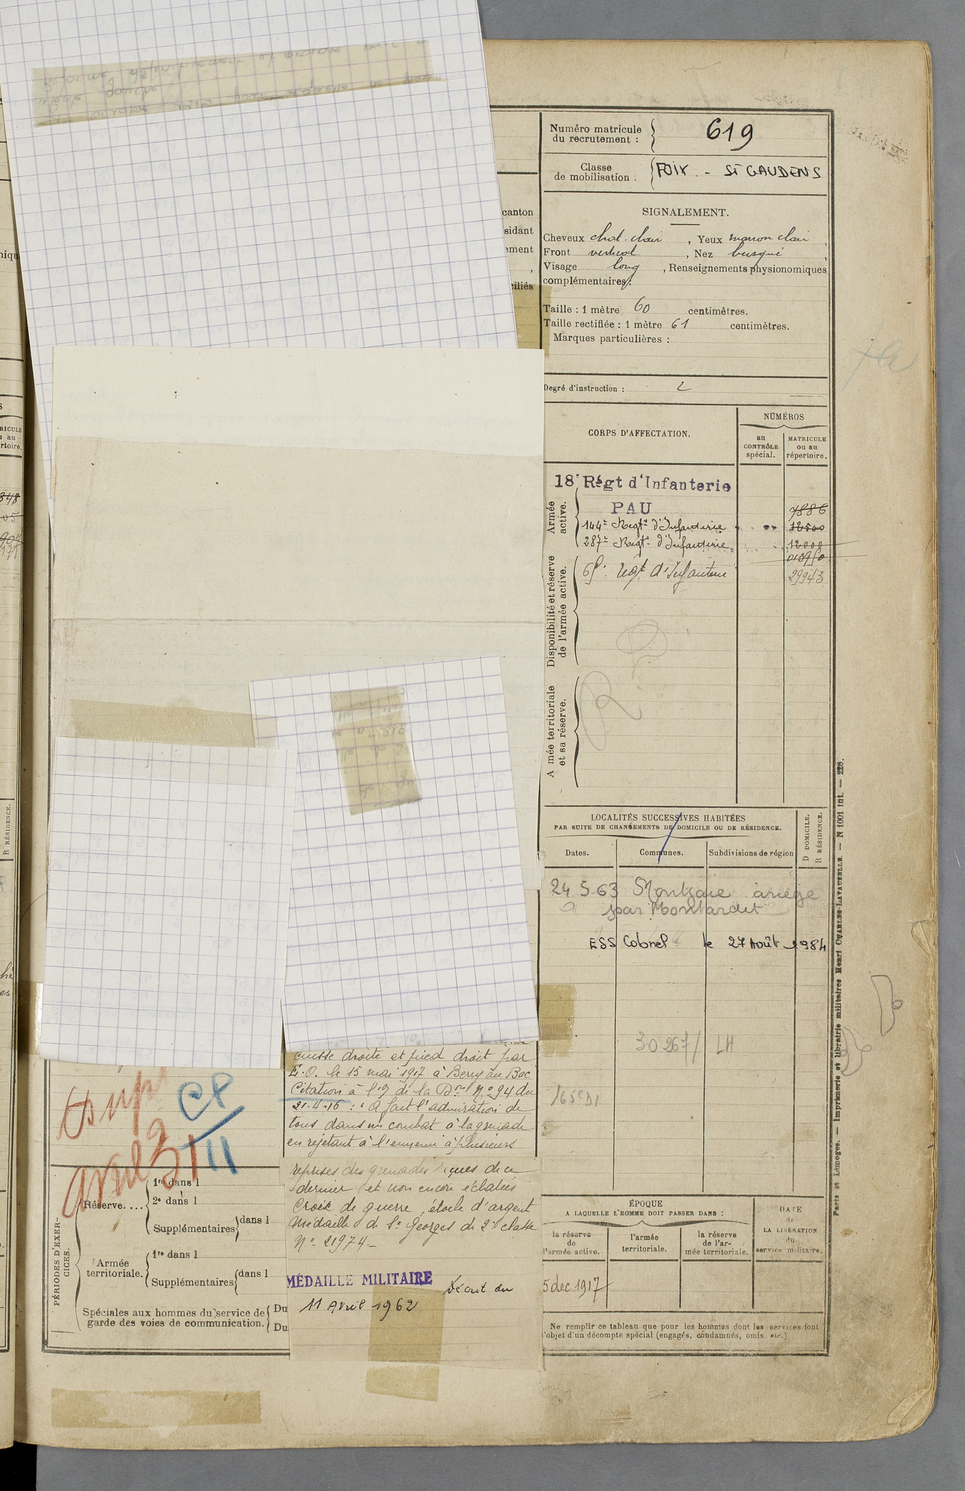 Numéro matricule
du recrutement :
619
Classe
de mobilisation :
FOIX - St GAUDENS
SIGNALEMENT.
Cheveux chat. clair, Yeux marron clair,
Front vertical, Nez busqué,
Visage long, Renseignements physionomiques
complémentaires :
Taille : 1 mètre 60 centimètres.
Taille rectifiée : 1 mètre 61 centimètres.
Marques particulières :
Degré d'instruction : 2
canton
sidant
ement
ciliés
CORPS D'AFFECTATION.
NUMÉROS
au
CONTRÔLE
spécial.
MATRICULE
ou au
répertoire.
Armée
active.
18e Régt d'Infanterie
PAU
7886
144e Regt d'Infanterie
12500
287e Regt d'Infanterie
12008
Disponibilité et réserve
de l'armée active.
Régt d'Infanterie
29343
A mée territoriale
et sa réserve.
LOCALITÉS SUCCESSIVES HABITÉES
PAR SUITE DE CHANGEMENTS DE DOMICILE OU DE RÉSIDENCE.
D DOMICILE.
R RÉSIDENCE.
Dates.
Communes.
Subdivisions de région
24 5 63 ariège
par Montardit
ESS Colonel le 27 Août 1984
30267/ LH
cuisse droite et pied droit par
E.O. le 15 mai 1917 à Berry au Bac
Citation à l'O de la Don No 94 du
21.4.16 : "A fait l'admiration de
tous dans un combat à la grenade
en rejetant à l'ennemi à plusieurs
reprises des grenades reçues de ce
dernier et non encore éclatées
Croix de guerre, étoile d'argent
Médaille de St Georges de 2e classe
No 21974.-
MÉDAILLE MILITAIRE Décret du
11 Avril 1962
CP
11
PÉRIODES D'EXER-
CICES.
Réserve....
1re dans l
2e dans l
Supplémentaires dans l
Armée
territoriale.
1re dans l
Supplémentaires dans l
Spéciales aux hommes du service de
garde des voies de communication.
Du
Du
ÉPOQUE
A LAQUELLE L'HOMME DOIT PASSER DANS :
DATE
de
LA LIBÉRATION
du
service militaire.
la réserve
de
l'armée active.
l'armée
territoriale.
la réserve
de l'ar-
mée territoriale.
5 dec 1917
Ne remplir ce tableau que pour les hommes dont les services font
l'objet d'un décompte spécial (engagés, condamnés, omis, etc.)
Paris et Limoges. — Imprimerie et librairie militaires Henri CHARLES-LAVAUZELLE. — N 1001 int. — 228.